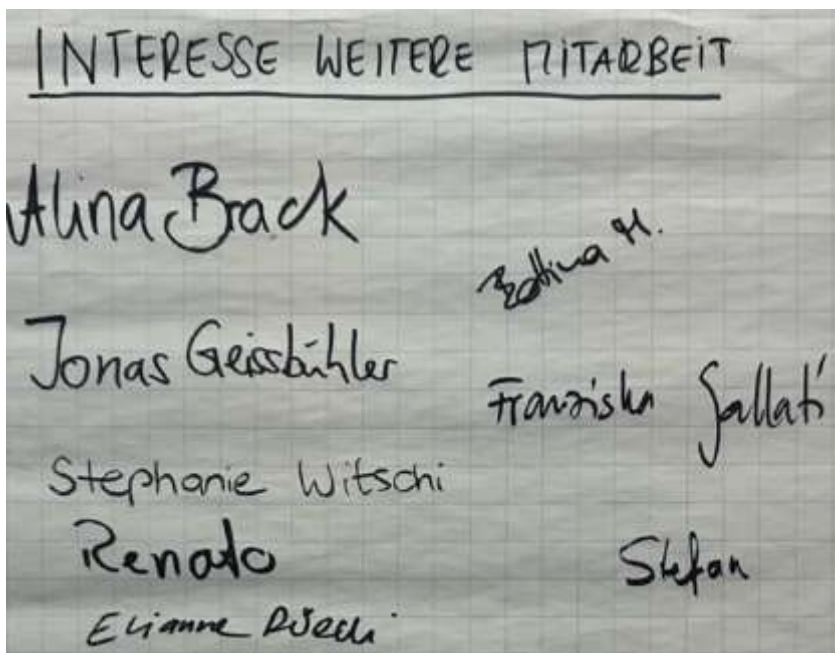 INTERESSE WEITERE MITARBEIT
Alina Brack
Bettina M.
Jonas Geissbühler
Franziska Gallati
Stephanie Witschi
Renato
Stefan
Elianne